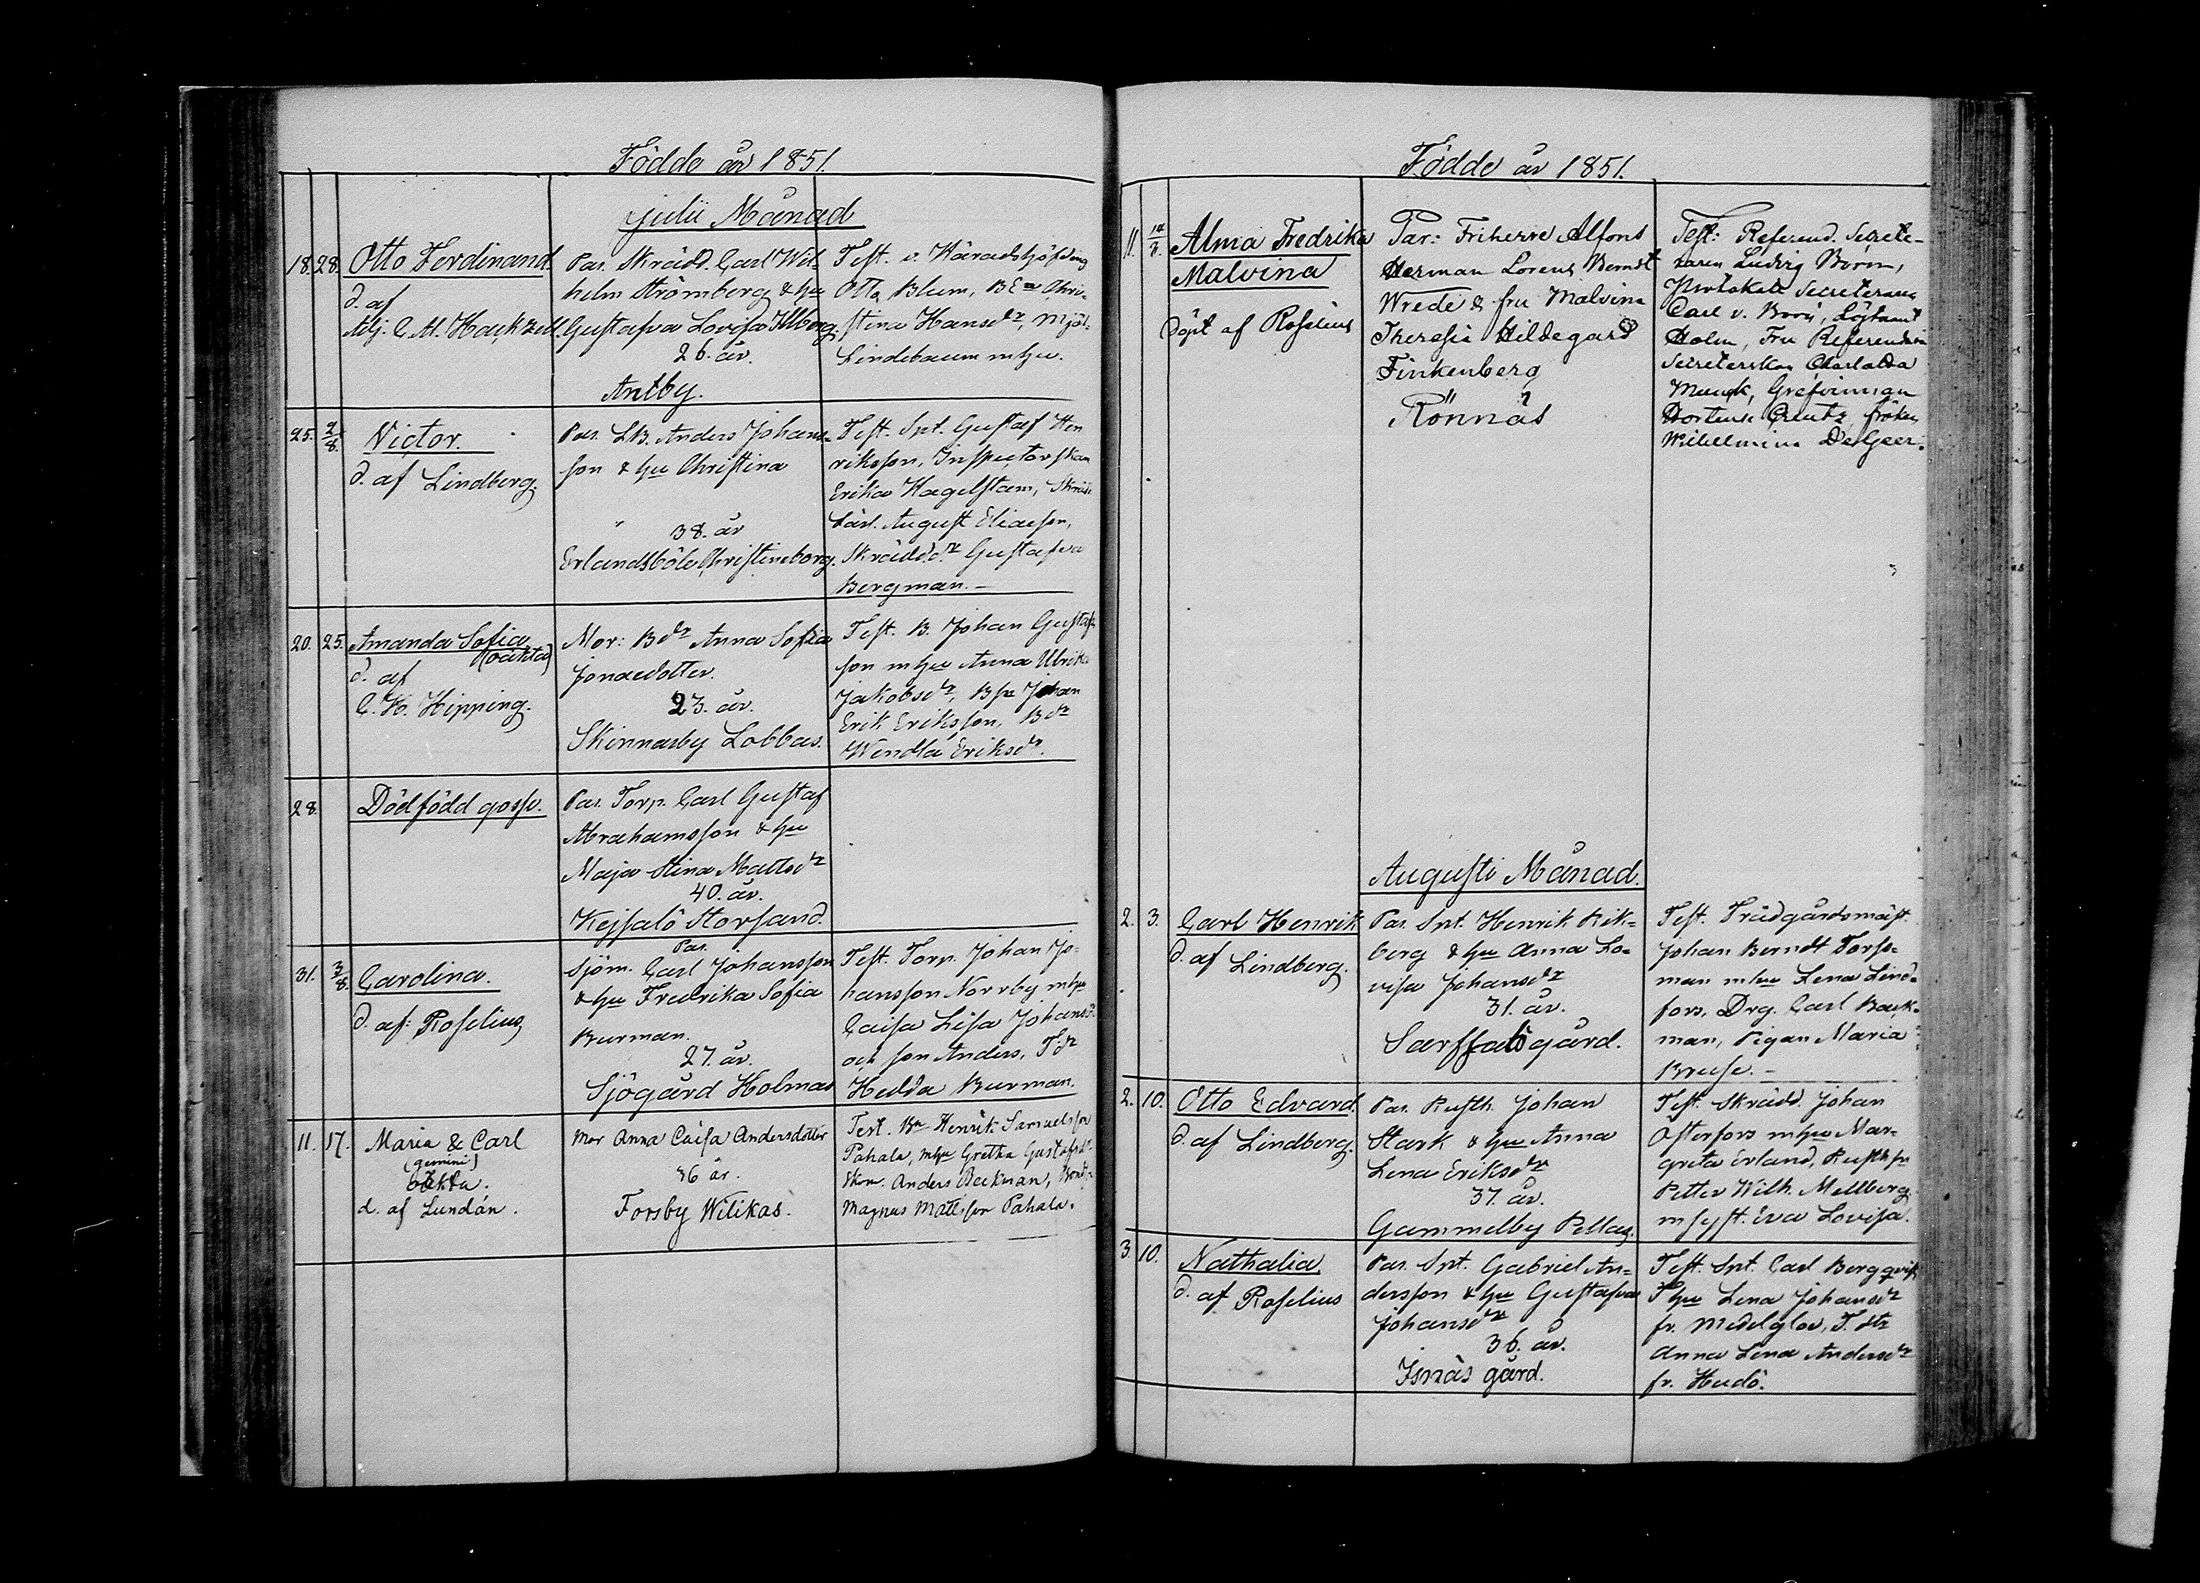 Födde år 1851.
Julii Månad
18. 28. Otto Ferdinand.
d. af
Adj. C. M. Hackzell.
Par. Skrädd. Carl Wil-
helm Strömberg & hu
Gustafva Lovisa Illberg.
26. år.
Antby.
Test. v. Häradshöfding
Otto Blum, BEn Chri-
stina Hansdr, Mjöl.
Lindebaum mhu.
25. 2/8 Victor.
d. af Lindberg.
Par. LB. Anders Johans-
son & hu Christina
38. år
Erlandsböle Christineborg.
Test. Spt. Gustaf Hen
riksson, Inspectorskan
Erika Hagelstam, Skrädd.
Lärl. August Eliaeson,
Skrädd.dr Gustafva
Bergman.
20. 25. Amanda Sofia
(oäkta)
d. af
C. H. Hipping.
Mor: Bdr Anna Sofia
Jonaedotter.
23. år.
Skinnarby Lobbas.
Test. B. Johan Gustafs-
son mhu Anna Ulrika
Jakobsdr, Bsn Johan
Erik Eriksson, Bdr
Wendla Eriksdr.
28. Dödfödd gosse.
Par. Torp. Carl Gustaf
Abrahamsson & hu
Maja Stina Mattsdr
40. år.
Kejsalö Storsand.
31. 3/8. Carolina.
d. af: Roselius
Par.
Sjöm. Carl Johansson
& hu Fredrika Sofia
Burman.
27. år.
Sjögård Holmas
Test. Torp. Johan Jo-
hansson Norrby mhu
Caisa Lisa Johansd.
och son Anders, Tdr
Hedda Burman.
11. 17. Maria & Carl
(gemini)
oäkta.
d. af Lundán.
Mor Anna Caisa Andersdotter
36 år.
Forsby Wilikas.
Test. Bn Henrik Samuelsson
Pahala, mhu Gretha Gustafsdr
Skom. Anders Beckman,
Magnus Mattsson Pahala.
Födde år 1851.
11. Alma Fredrika
Malvina
Döpt af Roselius
Par: Friherre Alfons
Herman Lorens Berndt
Wrede & fru Malvina
Theresia Hildegard
Finkenberg
Rönnäs
Test: Referend. Secrete-
raren Ludvig Born,
Protokoll Secreteraren
Carl v. Born, Löjtnant
Holm, Fru Referendarie
Secreterskan Charlotta
Munck, Grefvinnan
Hortense Creutz, fröken
Wilhelmina DeGeer.
Augusti Månad.
2. 3. Carl Henrik
d. af Lindberg.
Par. Spt. Henrik Rik-
berg & hu Anna Lo-
visa Johansdr
31. år.
Sarfsalö gård.
Test. Trädgårdsmäst.
Johan Berndt Torss-
man mhu Lena Lind-
fors, Drg. Carl Back-
man, Pigan Maria
Bruse.
2. 10. Otto Edvard.
d. af Lindberg.
Par. Rusth. Johan
Stark & hu Anna
Lena Eriksdr
37. år.
Gammelby Pellas.
Test. Skrädd. Johan
Österfors mhu Mar-
greta Erland, Rusthsn
Petter Wilh. Mellberg
m syst. Eva Lovisa.
3. 10. Nathalia.
d. af Roselius
Par. Spt. Gabriel An-
dersson & hu Gustafva
Johansdr
36. år.
Isnäs gård.
Test. Spt. Carl Bergqvist
hu Lena Johansdr
fr. Medelglov, T. dtr
Anna Lena Andersdr
fr. Hudö.